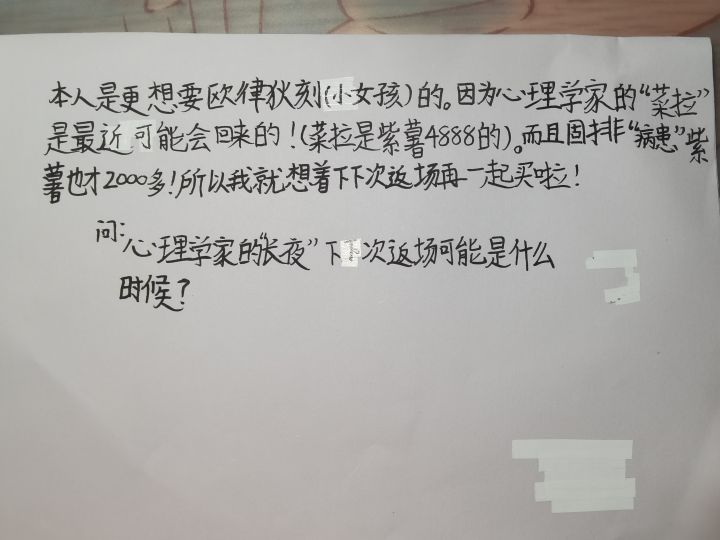 本人是更想要欧律狄刻(小女孩)的。因为心理学家的“菜拉”
是最近可能会回来的！(菜拉是紫薯4888的)。而且固排“病患”紫
薯也才2000多！所以我就想着下下次返场再一起买啦！
问：心理学家的“长夜”下下次返场可能是什么
时候？